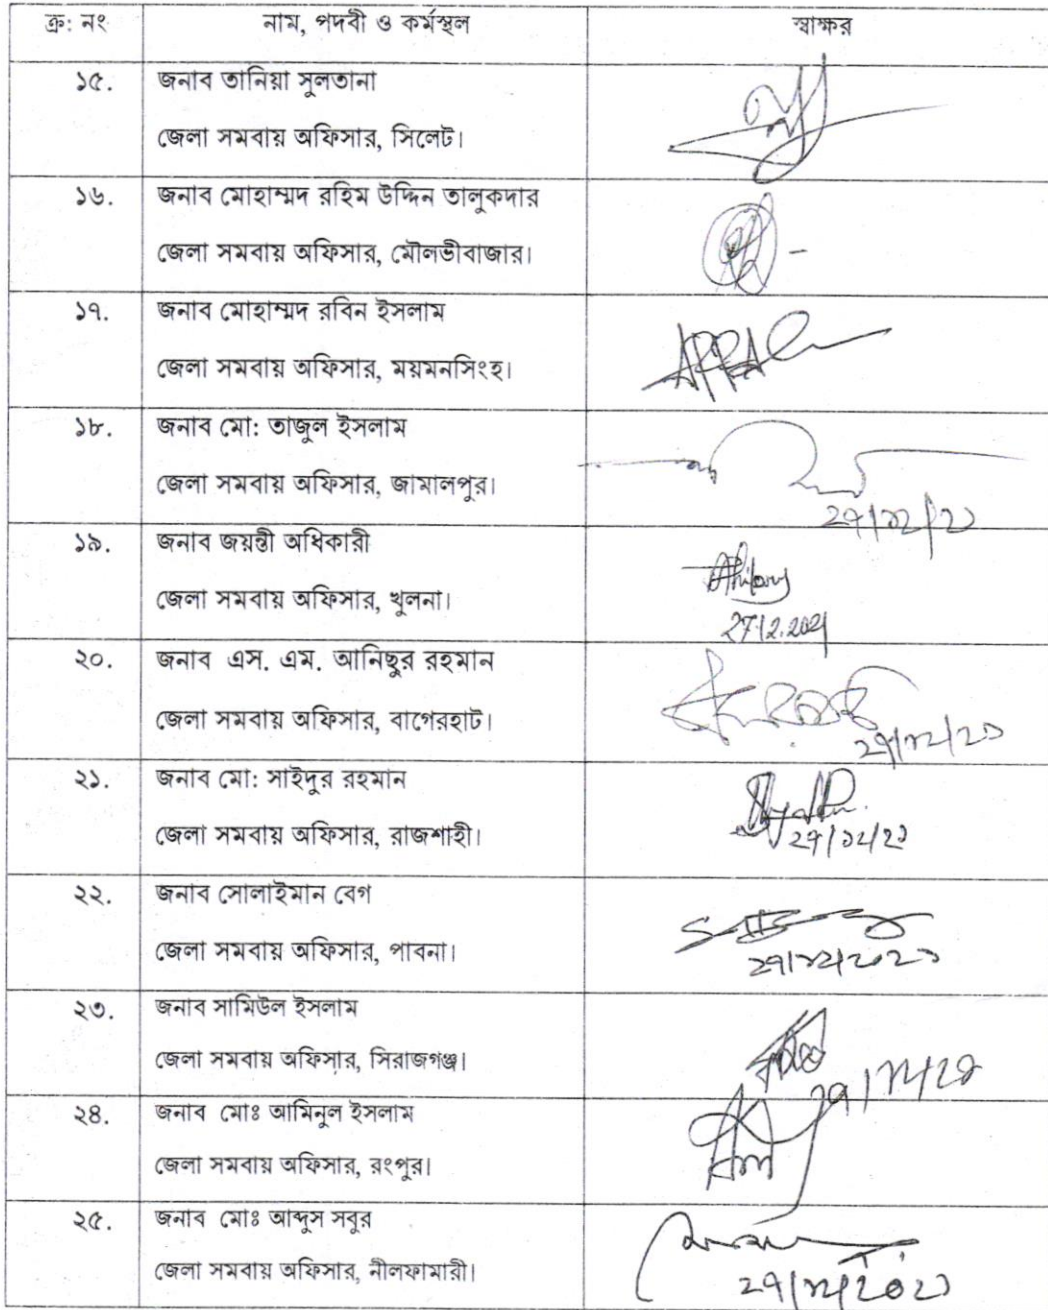 ক্র: নং নাম, পদবী ও কর্মস্থল স্বাক্ষর
১৫. জনাব তানিয়া সুলতানা
জেলা সমবায় অফিসার, সিলেট।
১৬. জনাব মোহাম্মদ রহিম উদ্দিন তালুকদার
জেলা সমবায় অফিসার, মৌলভীবাজার।
১৭. জনাব মোহাম্মদ রবিন ইসলাম
জেলা সমবায় অফিসার, ময়মনসিংহ।
১৮. জনাব মো: তাজুল ইসলাম
জেলা সমবায় অফিসার, জামালপুর।
২৭/১২/২১
১৯. জনাব জয়ন্তী অধিকারী
জেলা সমবায় অফিসার, খুলনা।
27.12.2021
২০. জনাব এস. এম. আনিছুর রহমান
জেলা সমবায় অফিসার, বাগেরহাট।
২৭/১২/২১
২১. জনাব মো: সাইদুর রহমান
জেলা সমবায় অফিসার, রাজশাহী।
২৭/১২/২১
২২. জনাব সোলাইমান বেগ
জেলা সমবায় অফিসার, পাবনা।
২৭/১২/২০২১
২৩. জনাব সামিউল ইসলাম
জেলা সমবায় অফিসার, সিরাজগঞ্জ।
২৭/১২/২১
২৪. জনাব মোঃ আমিনুল ইসলাম
জেলা সমবায় অফিসার, রংপুর।
২৫. জনাব মোঃ আব্দুস সবুর
জেলা সমবায় অফিসার, নীলফামারী।
২৭/১২/২০২১